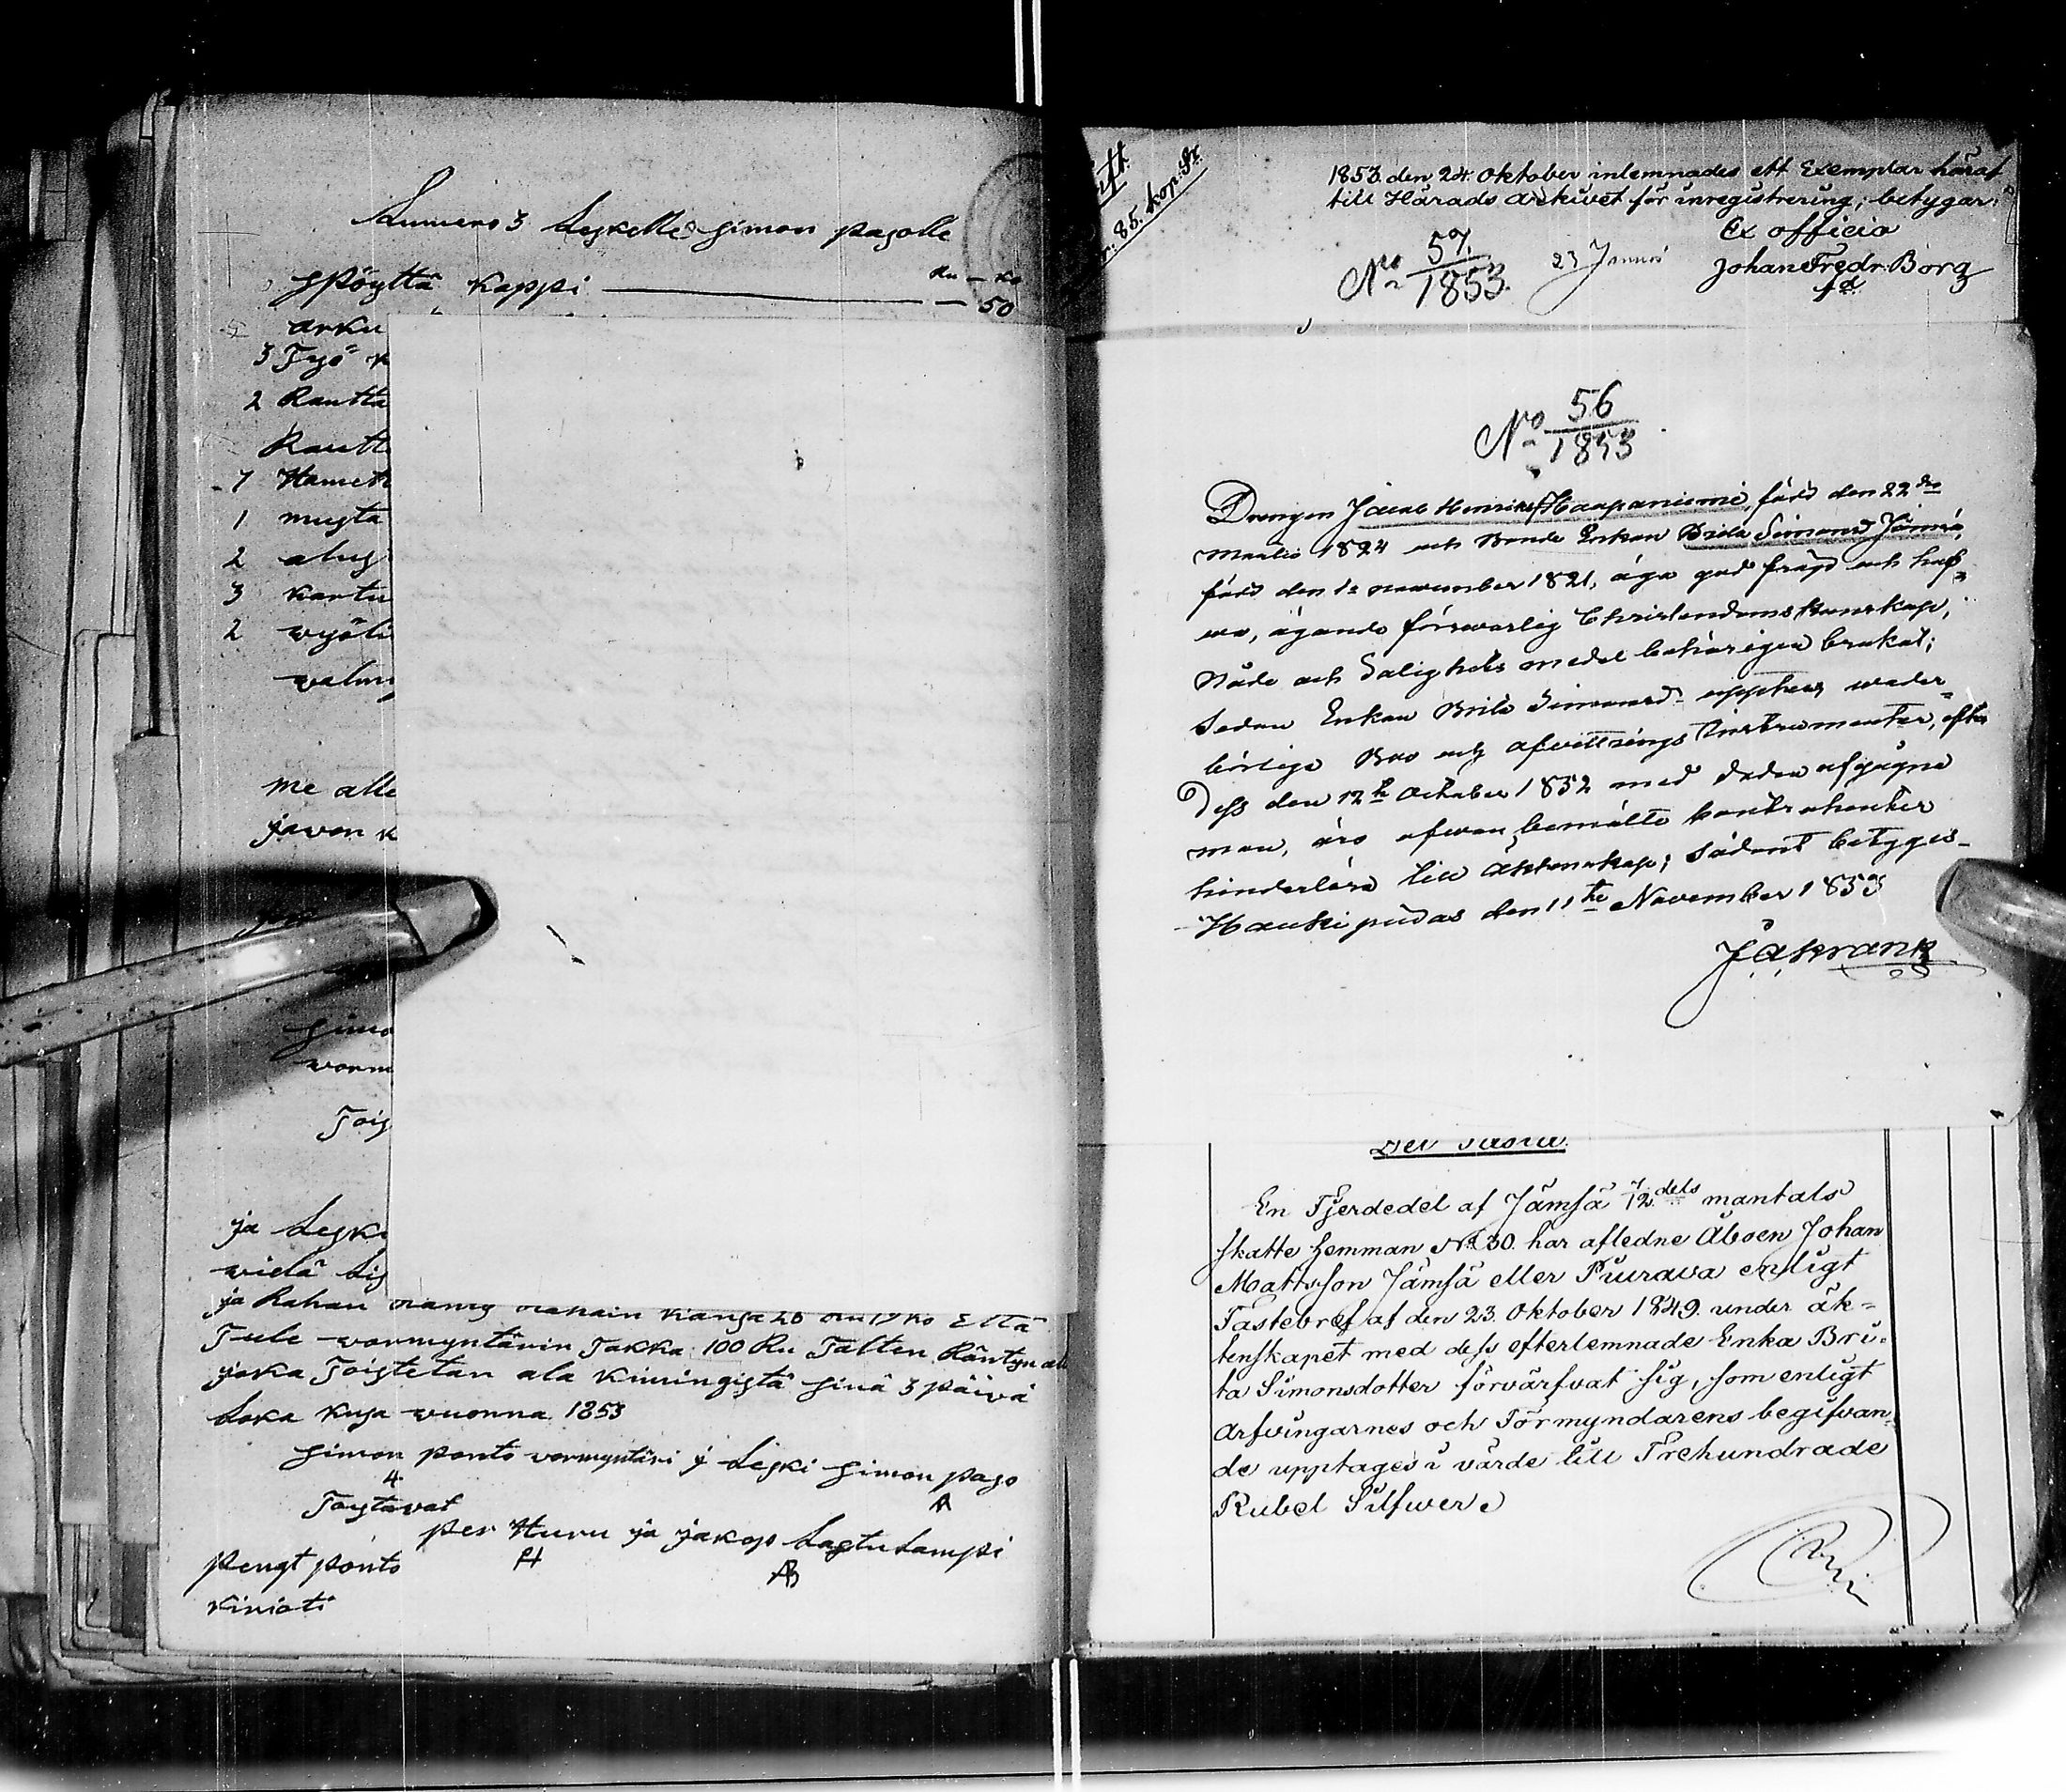 Lumero 3 Leskelle Simon pasolle
Ru — Ko
1 pöyttä kappi — 50
arku
3 Työ k
2 Rautta
Rautt
7 Hamet
1 musta
2 alus
3 kartu
2 vyöli
walm
me alle
javon k
Simo
vorm
Tois
ja Lesk
vielä Lis
ja Rahan
Tule vormyntärin Takka 100 Ru
joka Toistetan ala Kimingistä sinä 3 päivä
Loka kusa vuonna 1853
Simon ponto vormyntäri j Leski Simon paso
4
Toistavat
per Huru ja jakop Lastulampi
Pengt ponto
kirioti
r. 85. kop. Sr.
1853 den 24 Oktober inlemnades ett Exemplar häraf
till Härads Arkivet för inregistrering, betygar:
Ex officio
Johan Fredr. Borg
No 57/1853
23 Januari
No 56/1853
Drengen Jacob Henriks. Haapaniemi, född den 22dre
Martii 1824 och Bonde Enkan Brita Simonsd Jämsä,
född den 1e november 1821, äga god fräjd och haf-
wa, ägande försvarlig Christendoms kunskap,
Nåde och Salighets medel behörigen brukat;
Sedan Enkan Brita Simonsd upptett weder-
börliga Bro och afvittrings Instrumenter, efter
Dess den 12te October 1852 med döden afgågne
man, äro ofvan bemälte kontrahenter
hinderlösa till Äktenskap; sådant betyges.
Haukipudas den 11te November 1853
J A Krank
Det Fasta.
En Fjerdedel af Jämsä 7/12 dels mantals
skatte hemman No 30. har afledne Åboen Johan
Mattsson Jämsä eller Puurava enligt
Fastebref af den 23 Oktober 1849 under äk-
tenskapet med dess efterlemnade Enka Bri-
ta Simonsdotter förvärfvat sig, som enligt
Arfvingarnes och Förmyndarens begifvan-
de upptages i värde till Trehundrade
Rubel Silfver